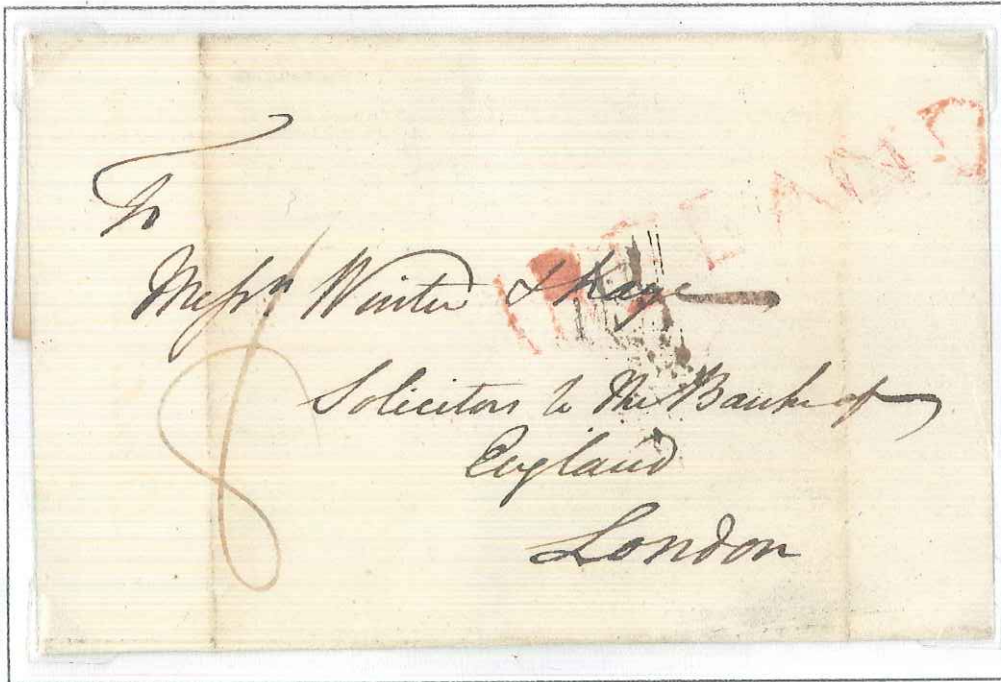 IRELAND
To
Messrs Winter & Kaye
Solicitors to The Bank of
England
London
8